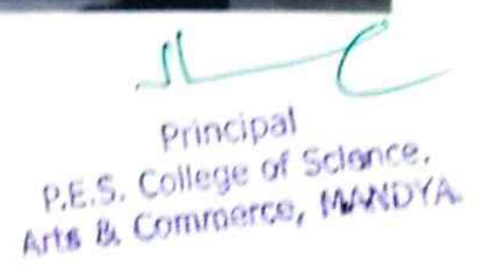 Principal
P.E.S. College of Science,
Arts & Commerce, MANDYA.